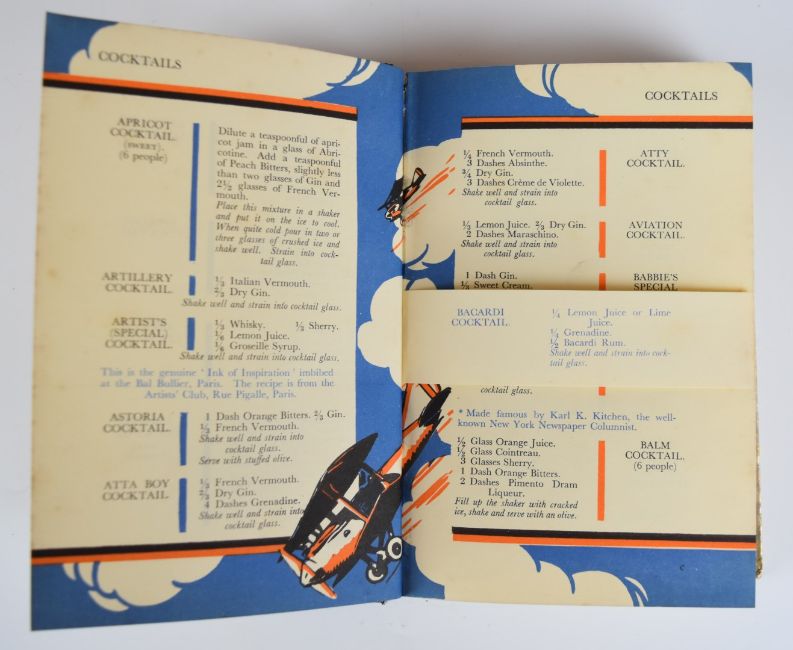 COCKTAILS
APRICOT
COCKTAIL.
(SWEET).
(6 people)
Dilute a teaspoonful of apri-
cot jam in a glass of Abri-
cotine. Add a teaspoonful
of Peach Bitters, slightly less
than two glasses of Gin and
2½ glasses of French Ver-
mouth.
Place this mixture in a shaker
and put it on the ice to cool.
When quite cold pour in two or
three glasses of crushed ice and
shake well. Strain into cock-
tail glass.
ARTILLERY
COCKTAIL.
⅓ Italian Vermouth.
⅔ Dry Gin.
Shake well and strain into cocktail glass.
ARTIST'S
(SPECIAL)
COCKTAIL.
⅓ Whisky. ⅓ Sherry.
⅙ Lemon Juice.
⅙ Groseille Syrup.
Shake well and strain into cocktail glass.
This is the genuine 'Ink of Inspiration' imbibed
at the Bal Bullier, Paris. The recipe is from the
Artists' Club, Rue Pigalle, Paris.
ASTORIA
COCKTAIL.
1 Dash Orange Bitters. ⅔ Gin.
⅓ French Vermouth.
Shake well and strain into
cocktail glass.
Serve with stuffed olive.
ATTA BOY
COCKTAIL
⅓ French Vermouth.
⅔ Dry Gin.
4 Dashes Grenadine.
Shake well and strain into
cocktail glass.
COCKTAILS
¼ French Vermouth.
3 Dashes Absinthe.
¾ Dry Gin.
3 Dashes Crême de Violette.
Shake well and strain into
cocktail glass.
ATTY
COCKTAIL.
⅓ Lemon Juice. ⅔ Dry Gin.
2 Dashes Maraschino.
Shake well and strain into
cocktail glass.
AVIATION
COCKTAIL.
1 Dash Gin.
⅓ Sweet Cream.
BABBIE'S
SPECIAL
BACARDI
COCKTAIL.
¼ Lemon Juice or Lime
Juice.
¼ Grenadine.
½ Bacardi Rum.
Shake well and strain into cock-
tail glass.
cocktail glass.
* Made famous by Karl K. Kitchen, the well-
known New York Newspaper Columnist.
½ Glass Orange Juice.
½ Glass Cointreau.
3 Glasses Sherry.
1 Dash Orange Bitters.
2 Dashes Pimento Dram
Liqueur.
Fill up the shaker with cracked
ice, shake and serve with an olive.
BALM
COCKTAIL.
(6 people)